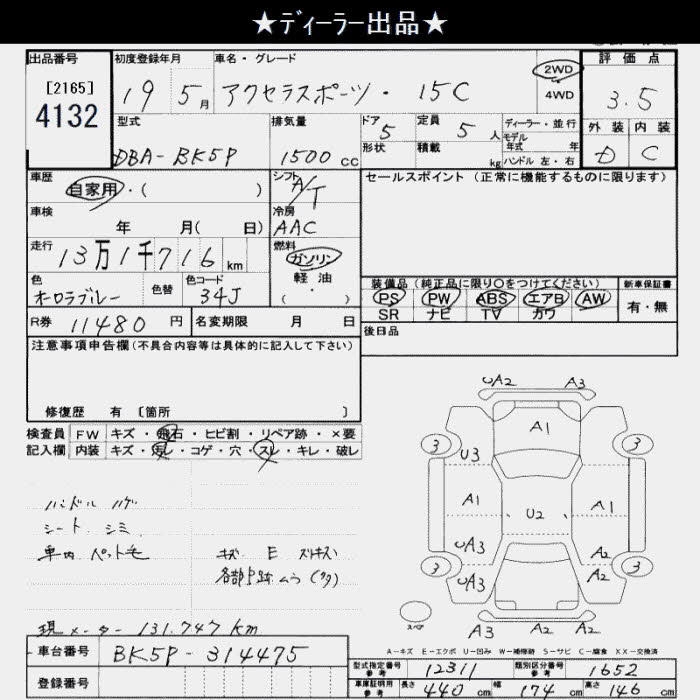 ★ディーラー出品★
出品番号
[2165]
4132
初度登録年月
19 5月
車名・グレード
アクセラスポーツ・ 15C
2WD
4WD
評価点
3.5
外装 内装
D C
型式
DBA-BK5P
排気量
1500cc
ドア
5
形状
定員
5人
積載
kg
ディーラー・並行
モデル
年式 年
ハンドル 左・右
車歴
自家用・( )
シフト
A/T
車検
年 月( 日)
冷房
AAC
走行
13万1千716km
燃料
ガソリン
軽油
( ・ )
色
オーロラブルー
色替
色コード
34J
R券 11480円
名変期限 月 日
セールスポイント (正常に機能するものに限ります)
装備品 (純正品に限り○をつけてください)
PS PW ABS エアB AW
SR ナビ TV カワ
新車保証書
有・無
後日品
注意事項申告欄(不具合内容等は具体的に記入して下さい)
修復歴 有 [箇所 ]
検査員
記入欄
FW キズ・飛石・ヒビ割・リペア跡・×要
内装 キズ・汚レ・コゲ・穴・スレ・キレ・破レ
ハンドル ハゲ
シート シミ
車内 ペット毛
キズ E スリキズ)
各部P跡ムラ (タク)
現メーター 131.747km
UA2 A3
A1
3 3
U3
A1 U2 A1
UA3 A2
3 3
UA3 A2
スペア
A3 A2 A2
A-キズ E-エクボ U-凹ミ W-補修跡 S-サビ C-腐食 XX-交換済
車台番号 BK5P-314475
登録番号
型式指定番号
参考
12311
類別区分番号
参考
1652
車庫証明用
参考
長さ 440cm 幅 174cm 高さ 146cm